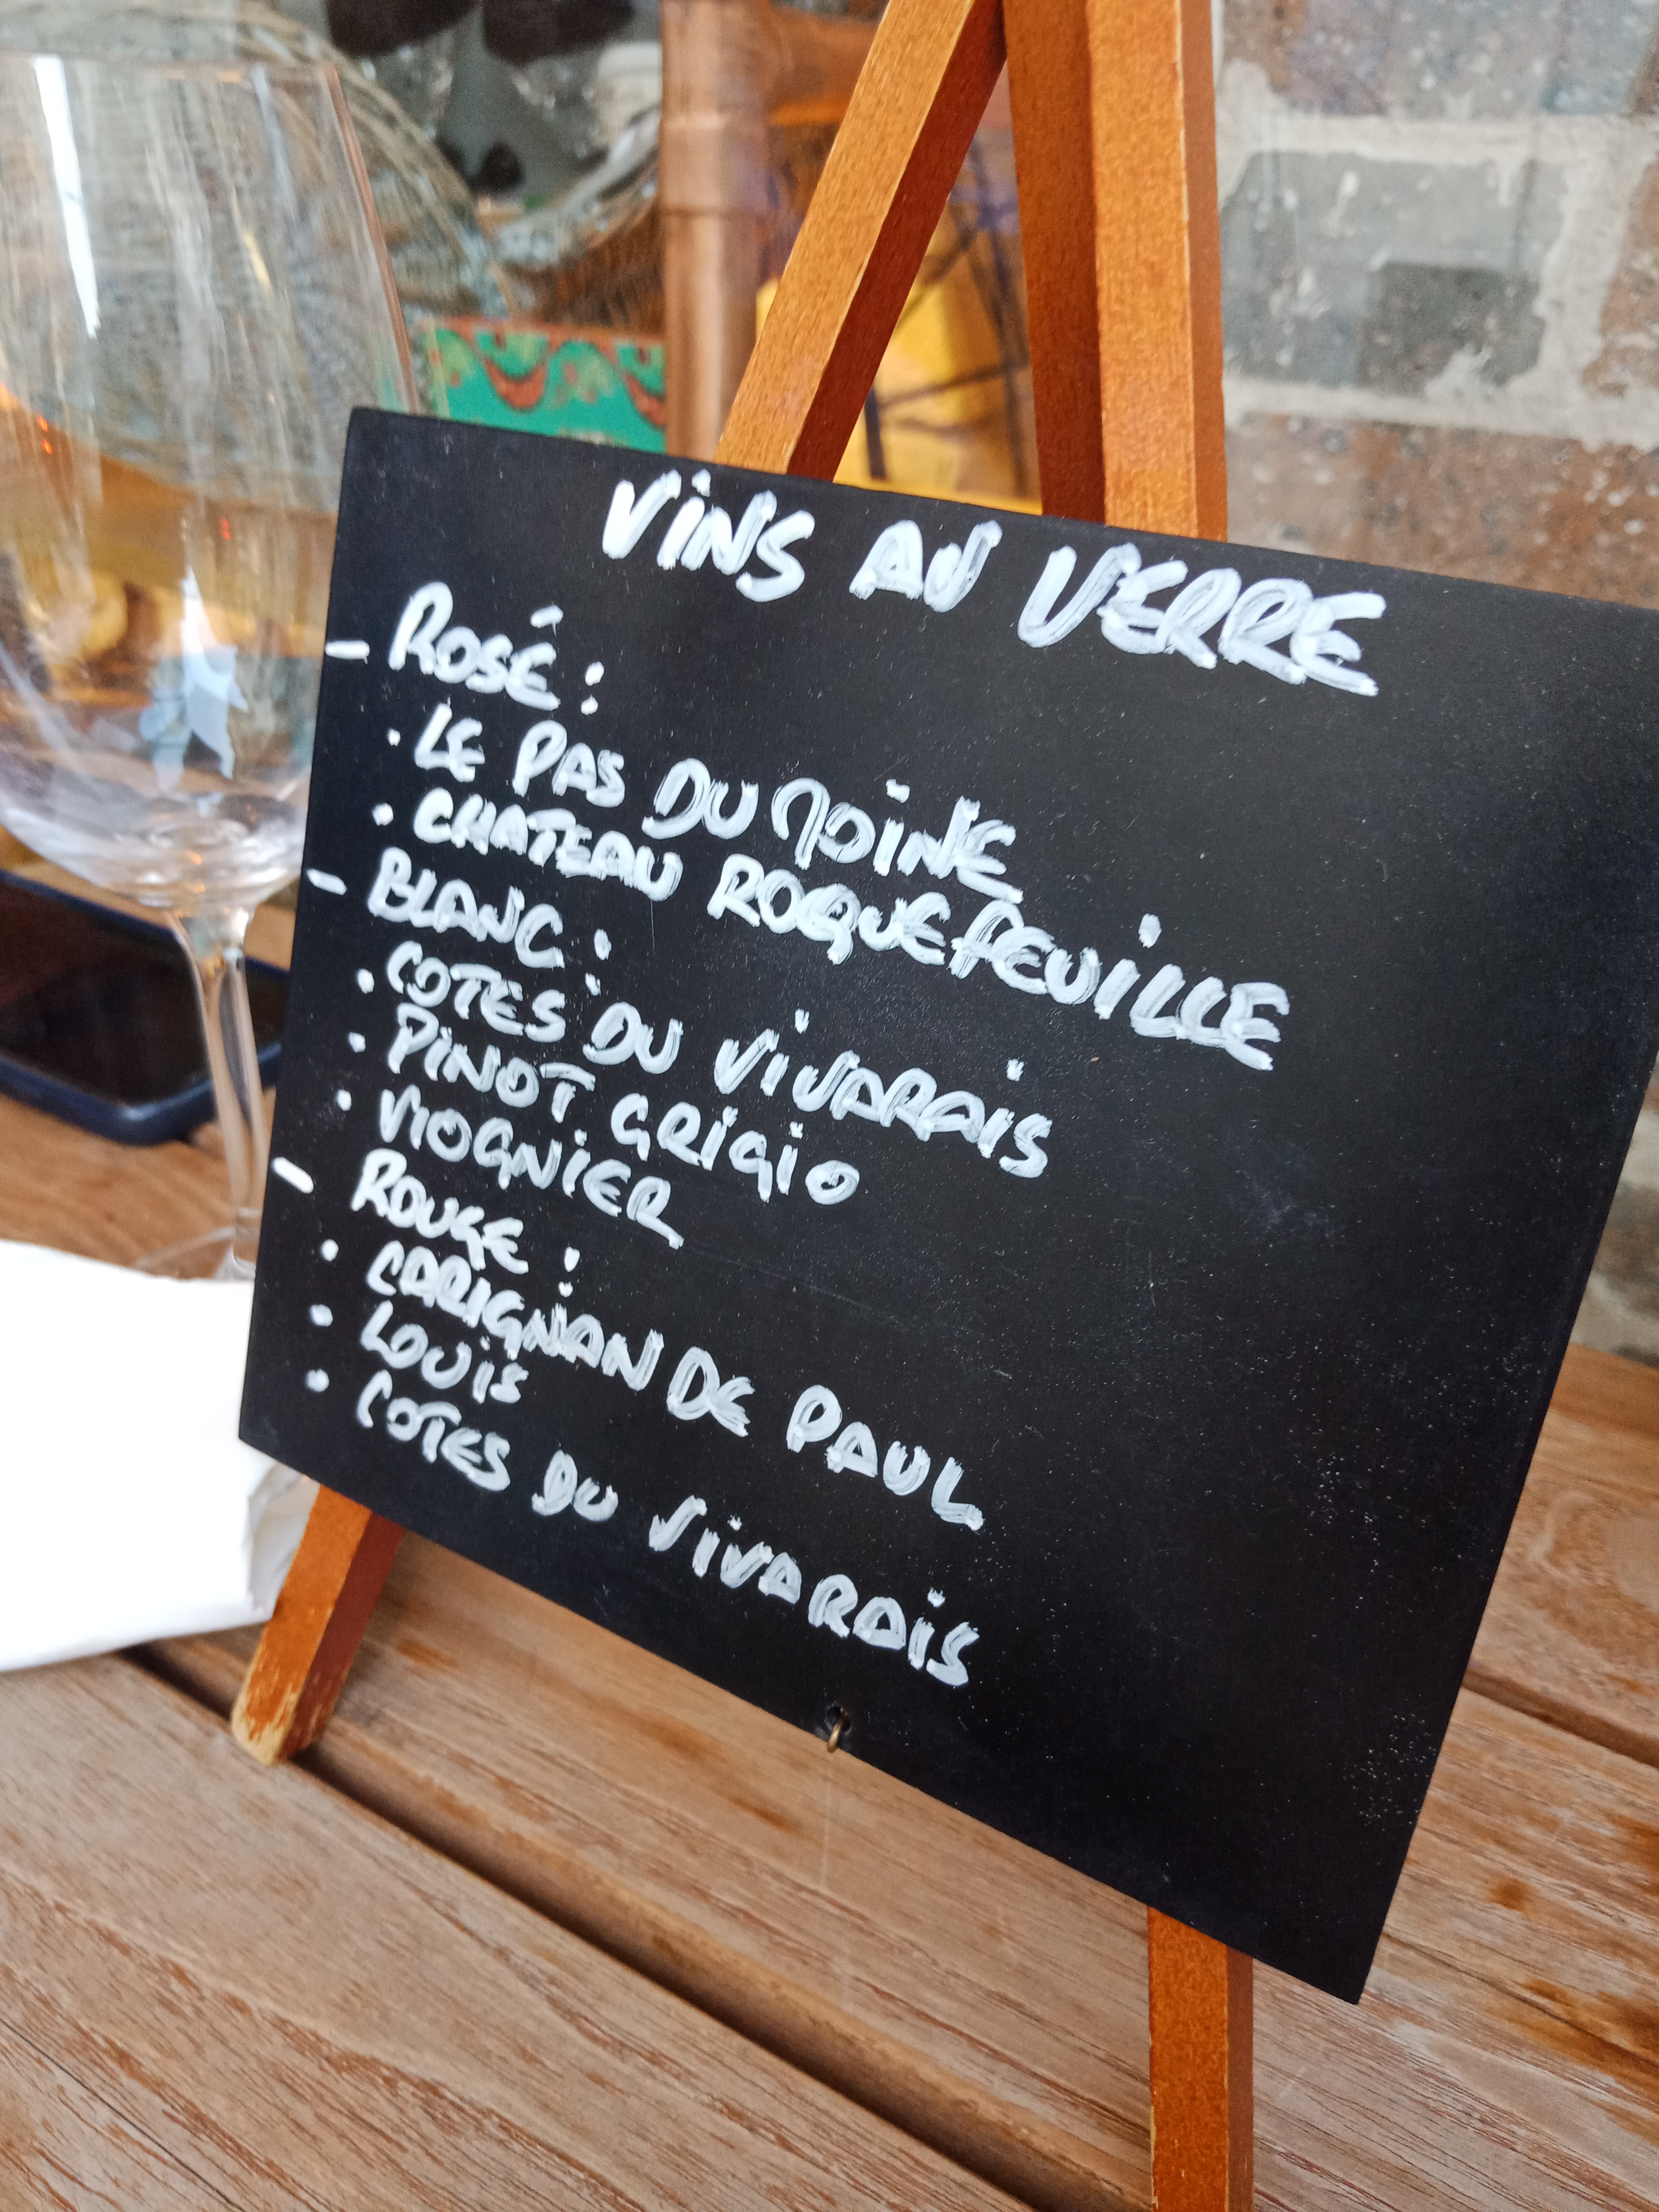 VINS AU VERRE
– ROSÉ :
· LE PAS DU MOINE
· CHATEAU ROQUEFEUILLE
– BLANC :
· COTES DU VIVARAIS
· PINOT GRIGIO
· VIOGNIER
– ROUGE :
· CARIGNAN DE PAUL
· LOUIS
· COTES DU VIVARAIS